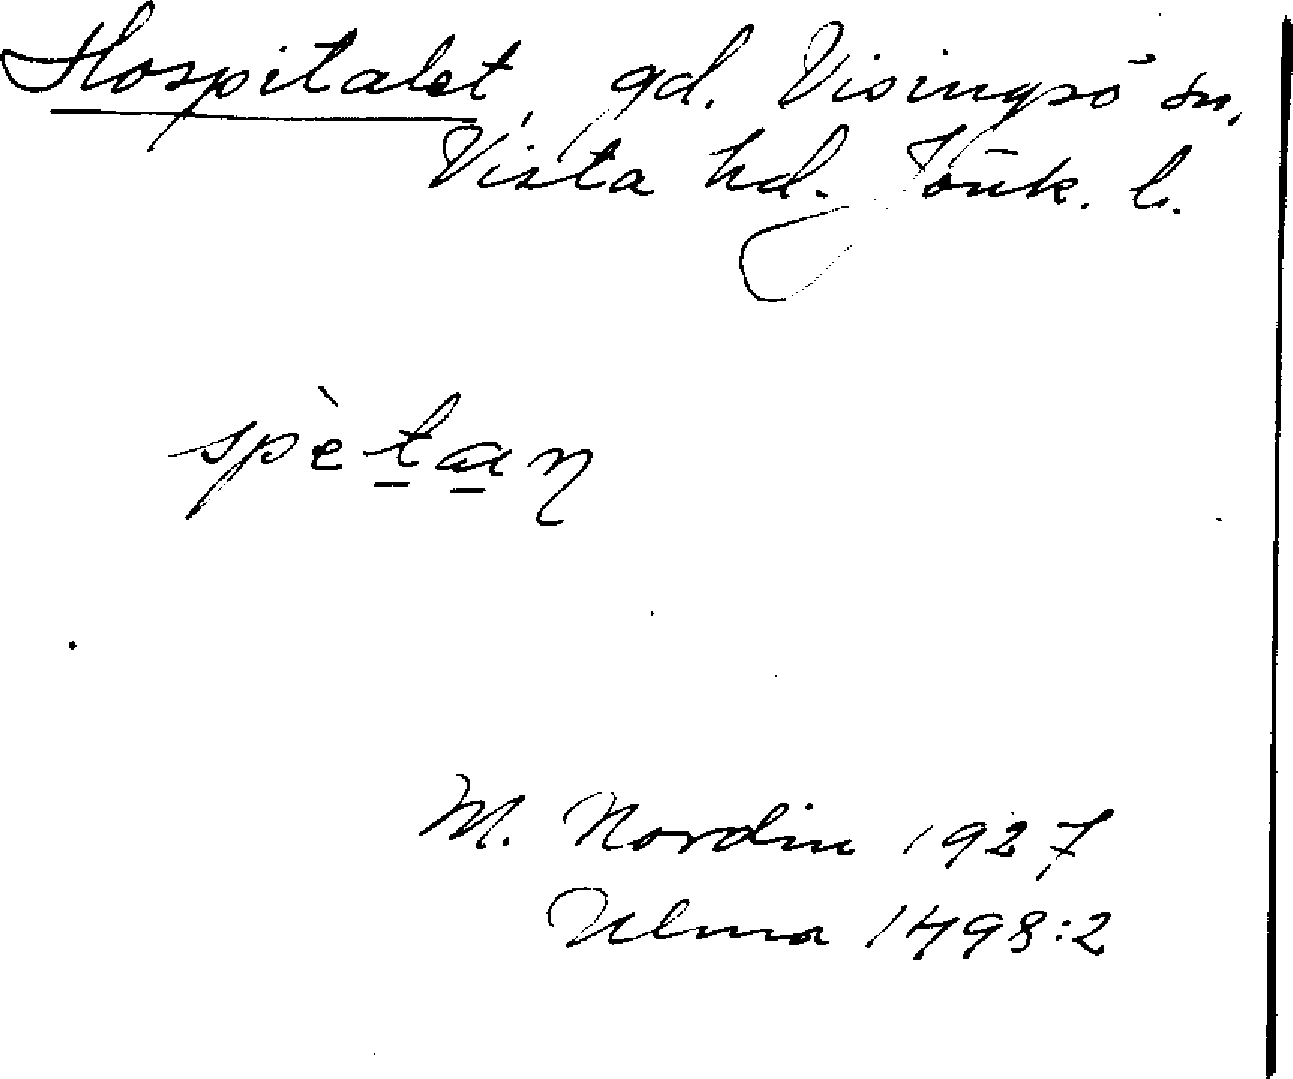 Hospitalet, gd. Visingsö sn,
Vista hd. Jönk. l.
spèt̠a̠η
M. Nordin 1927
Ulma 1498:2